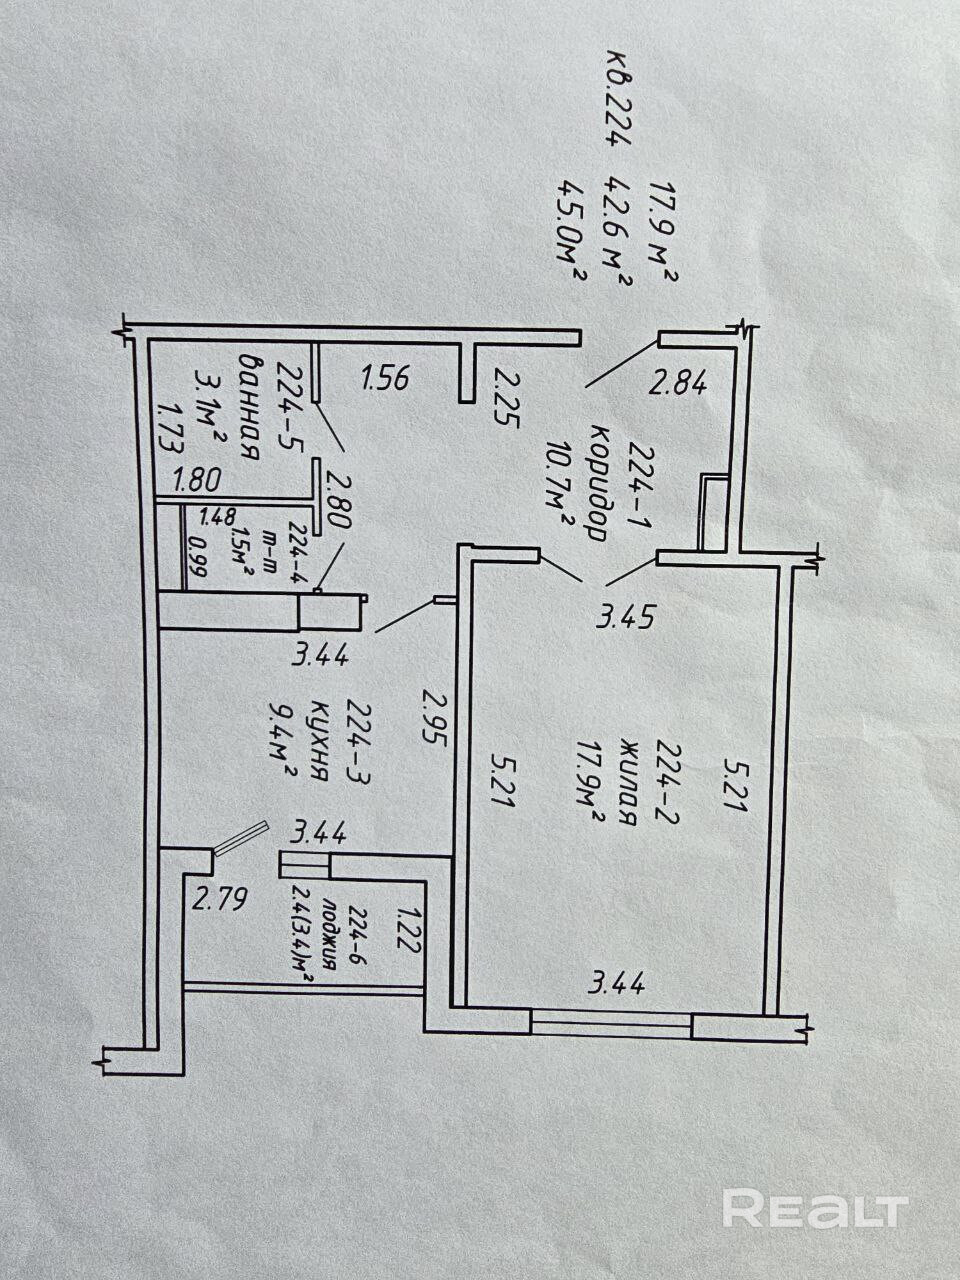 кв.224
17.9 м²
42.6 м²
45.0м²
2.84
2.25
1.56
224-5
ванная
3.1м²
1.73
1.80
2.80
224-1
коридор
10.7м²
1.48
224-4
т-т
1.5м²
0.99
3.45
3.44
2.95
224-3
кухня
9.4м²
5.21
224-2
жилая
17.9м²
5.21
3.44
2.79
224-6
лоджия
2.4(3.4)м²
1.22
3.44
REALT